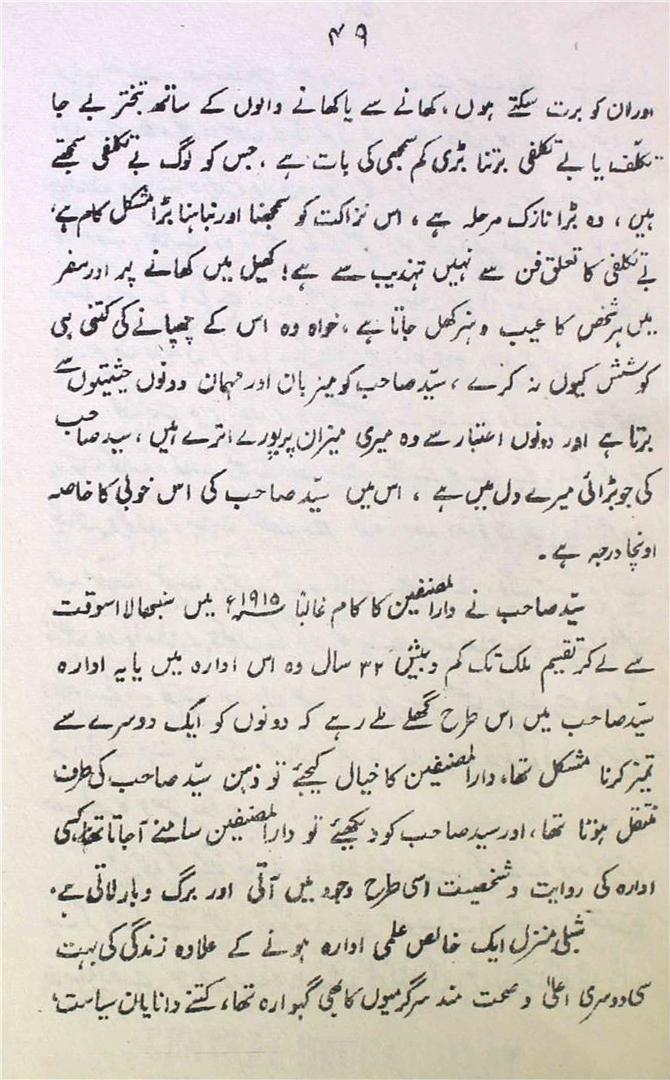 ۴۹
اوران کو برت سکتے ہوں، کھانے سے یا کھانے والوں کے ساتھ تبختر بے جا
تکلّف یا بے تکلفی برتنا بڑی کم سمجھی کی بات ہے، جس کو لوگ بے تکلفی سمجھتے
ہیں، وہ بڑا نازک مرحلہ ہے، اس نزاکت کو سمجھنا اور نباہنا بڑا مشکل کام ہے،
بے تکلفی کا تعلق فن سے نہیں تہذیب سے ہے! کھیل میں کھانے پر اور سفر
میں ہر شخص کا عیب و ہنر کھل جاتا ہے، خواہ وہ اس کے چھپانے کی کتنی ہی
کوشش کیوں نہ کرے، سیّد صاحب کو میزبان اور مہمان دونوں حیثیتوں سے
برتا ہے اور دونوں اعتبار سے وہ میری میزان پر پورے اترے ہیں، سید صاحب
کی جو بڑائی میرے دل میں ہے، اس میں سیّد صاحب کی اس خوبی کا خاصہ
اونچا درجہ ہے۔
سیّد صاحب نے دار المصنفین کا کام غالباً ۱۹۱۵ء میں سنبھالا اسوقت
سے لے کر تقسیم ملک تک کم و بیش ۳۲ سال وہ اس ادارہ میں یا یہ ادارہ
سیّد صاحب میں اس طرح گھلے ملے رہے کہ دونوں کو ایک دوسرے سے
تمیز کرنا مشکل تھا، دار المصنفین کا خیال کیجئے تو ذہن سیّد صاحب کی طرف
منتقل ہوتا تھا، اور سید صاحب کو دیکھئے تو دار المصنفین سامنے آجاتا تھا، کسی
ادارہ کی روایت و شخصیت اسی طرح وجود میں آتی اور برگ و بار لاتی ہے،
شبلی منزل ایک خالص علمی ادارہ ہونے کے علاوہ زندگی کی بہت
سی دوسری اعلیٰ و صحت مند سرگرمیوں کا بھی گہوارہ تھا، کتنے دانایان سیاست،